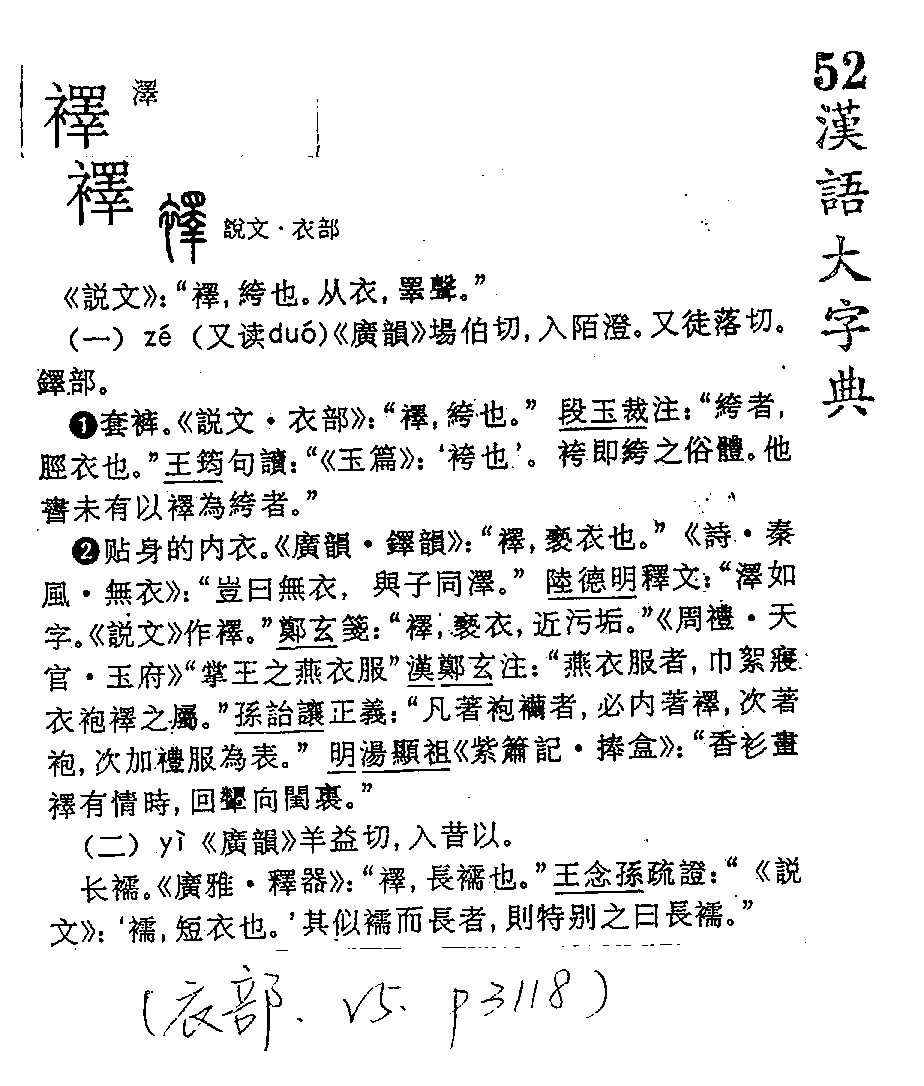 52
漢語大字典
襗 澤
襗 襗 說文·衣部
《説文》：“襗，絝也。从衣，睪聲。”
（一）zé （又读duó）《廣韻》場伯切，入陌澄。又徒落切。
鐸部。
❶套裤。《説文·衣部》：“襗，絝也。” 段玉裁注：“絝者，
脛衣也。”王筠句讀：“《玉篇》：‘袴也’。袴即絝之俗體。他
書未有以襗為絝者。”
❷贴身的内衣。《廣韻·鐸韻》：“襗，褻衣也。”《詩·秦
風·無衣》：“豈曰無衣，與子同澤。” 陸德明釋文：“澤如
字。《説文》作襗。”鄭玄箋：“襗，褻衣，近污垢。”《周禮·天
官·玉府》“掌王之燕衣服”漢鄭玄注：“燕衣服者，巾絮寢
衣袍襗之屬。”孫詒讓正義：“凡著袍襺者，必内著襗，次著
袍，次加禮服為表。” 明湯顯祖《紫簫記·捧盒》：“香衫畫
襗有情時，回顰向閨裏。”
（二）yì 《廣韻》羊益切，入昔以。
长襦。《廣雅·釋器》：“襗，長襦也。”王念孫疏證：“《説
文》：‘襦，短衣也。’其似襦而長者，則特别之曰長襦。”
(衣部. v5. p3118)